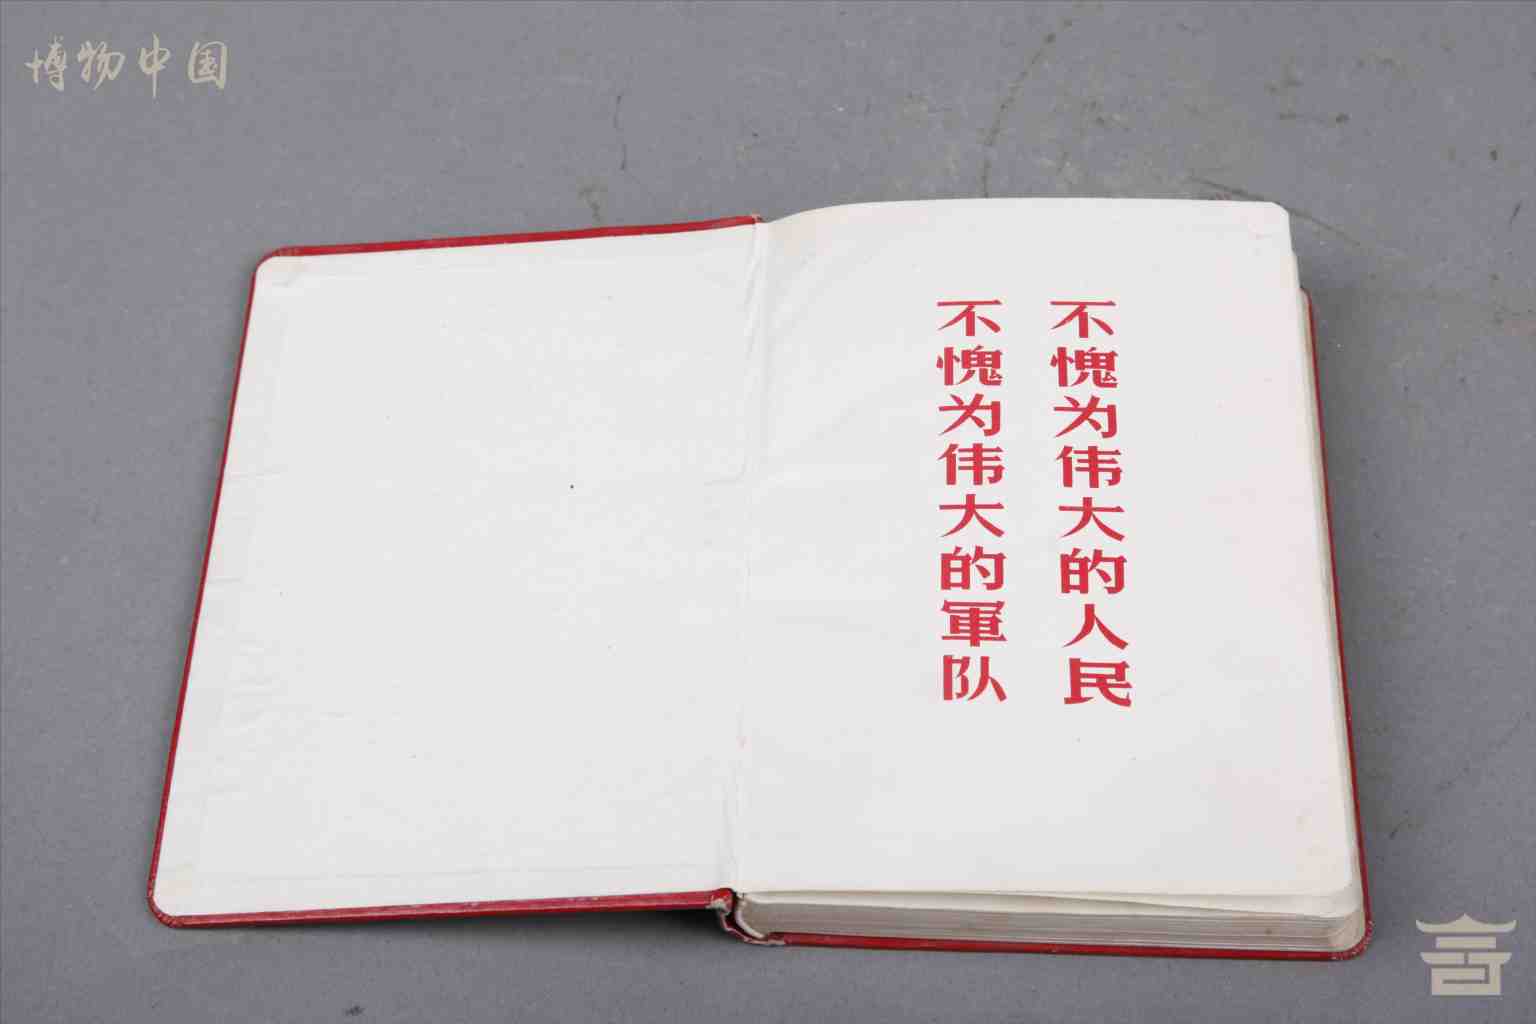 博物中国
不愧为伟大的人民
不愧为伟大的軍队